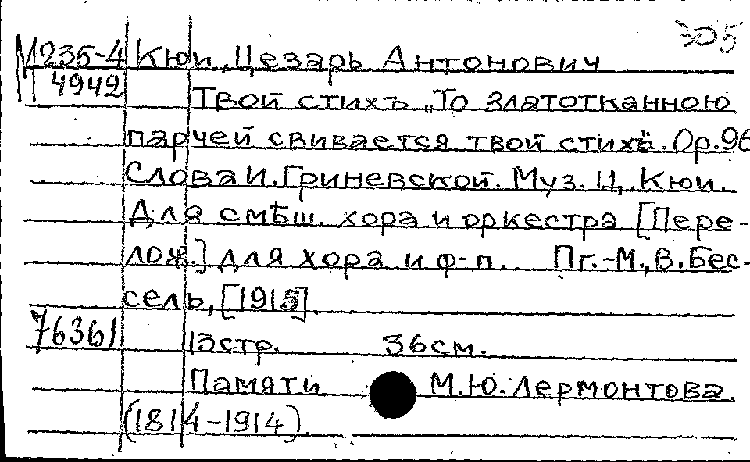 305
М 235-4 Кюи, Цезарь Антонович
4942 Твой стихъ „То златотканною
парчей свивается твой стихъ. Ор.96
Слова И. Гриневской. Муз. Ц. Кюи.
Для смѣш. хора и оркестра [Пере-
лож.] для хора и ф-п. Пг.-М., В. Бес-
сель, [1915].
76361 13 стр. 36 см.
Памяти М.Ю. Лермонтова.
(1814-1914).